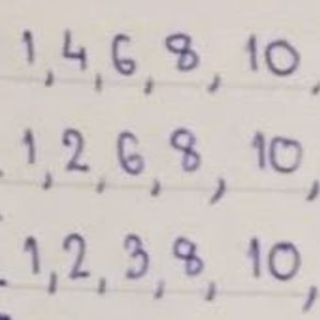 1, 4, 6, 8, 10,
1, 2, 6, 8, 10,
1, 2, 3, 8, 10,